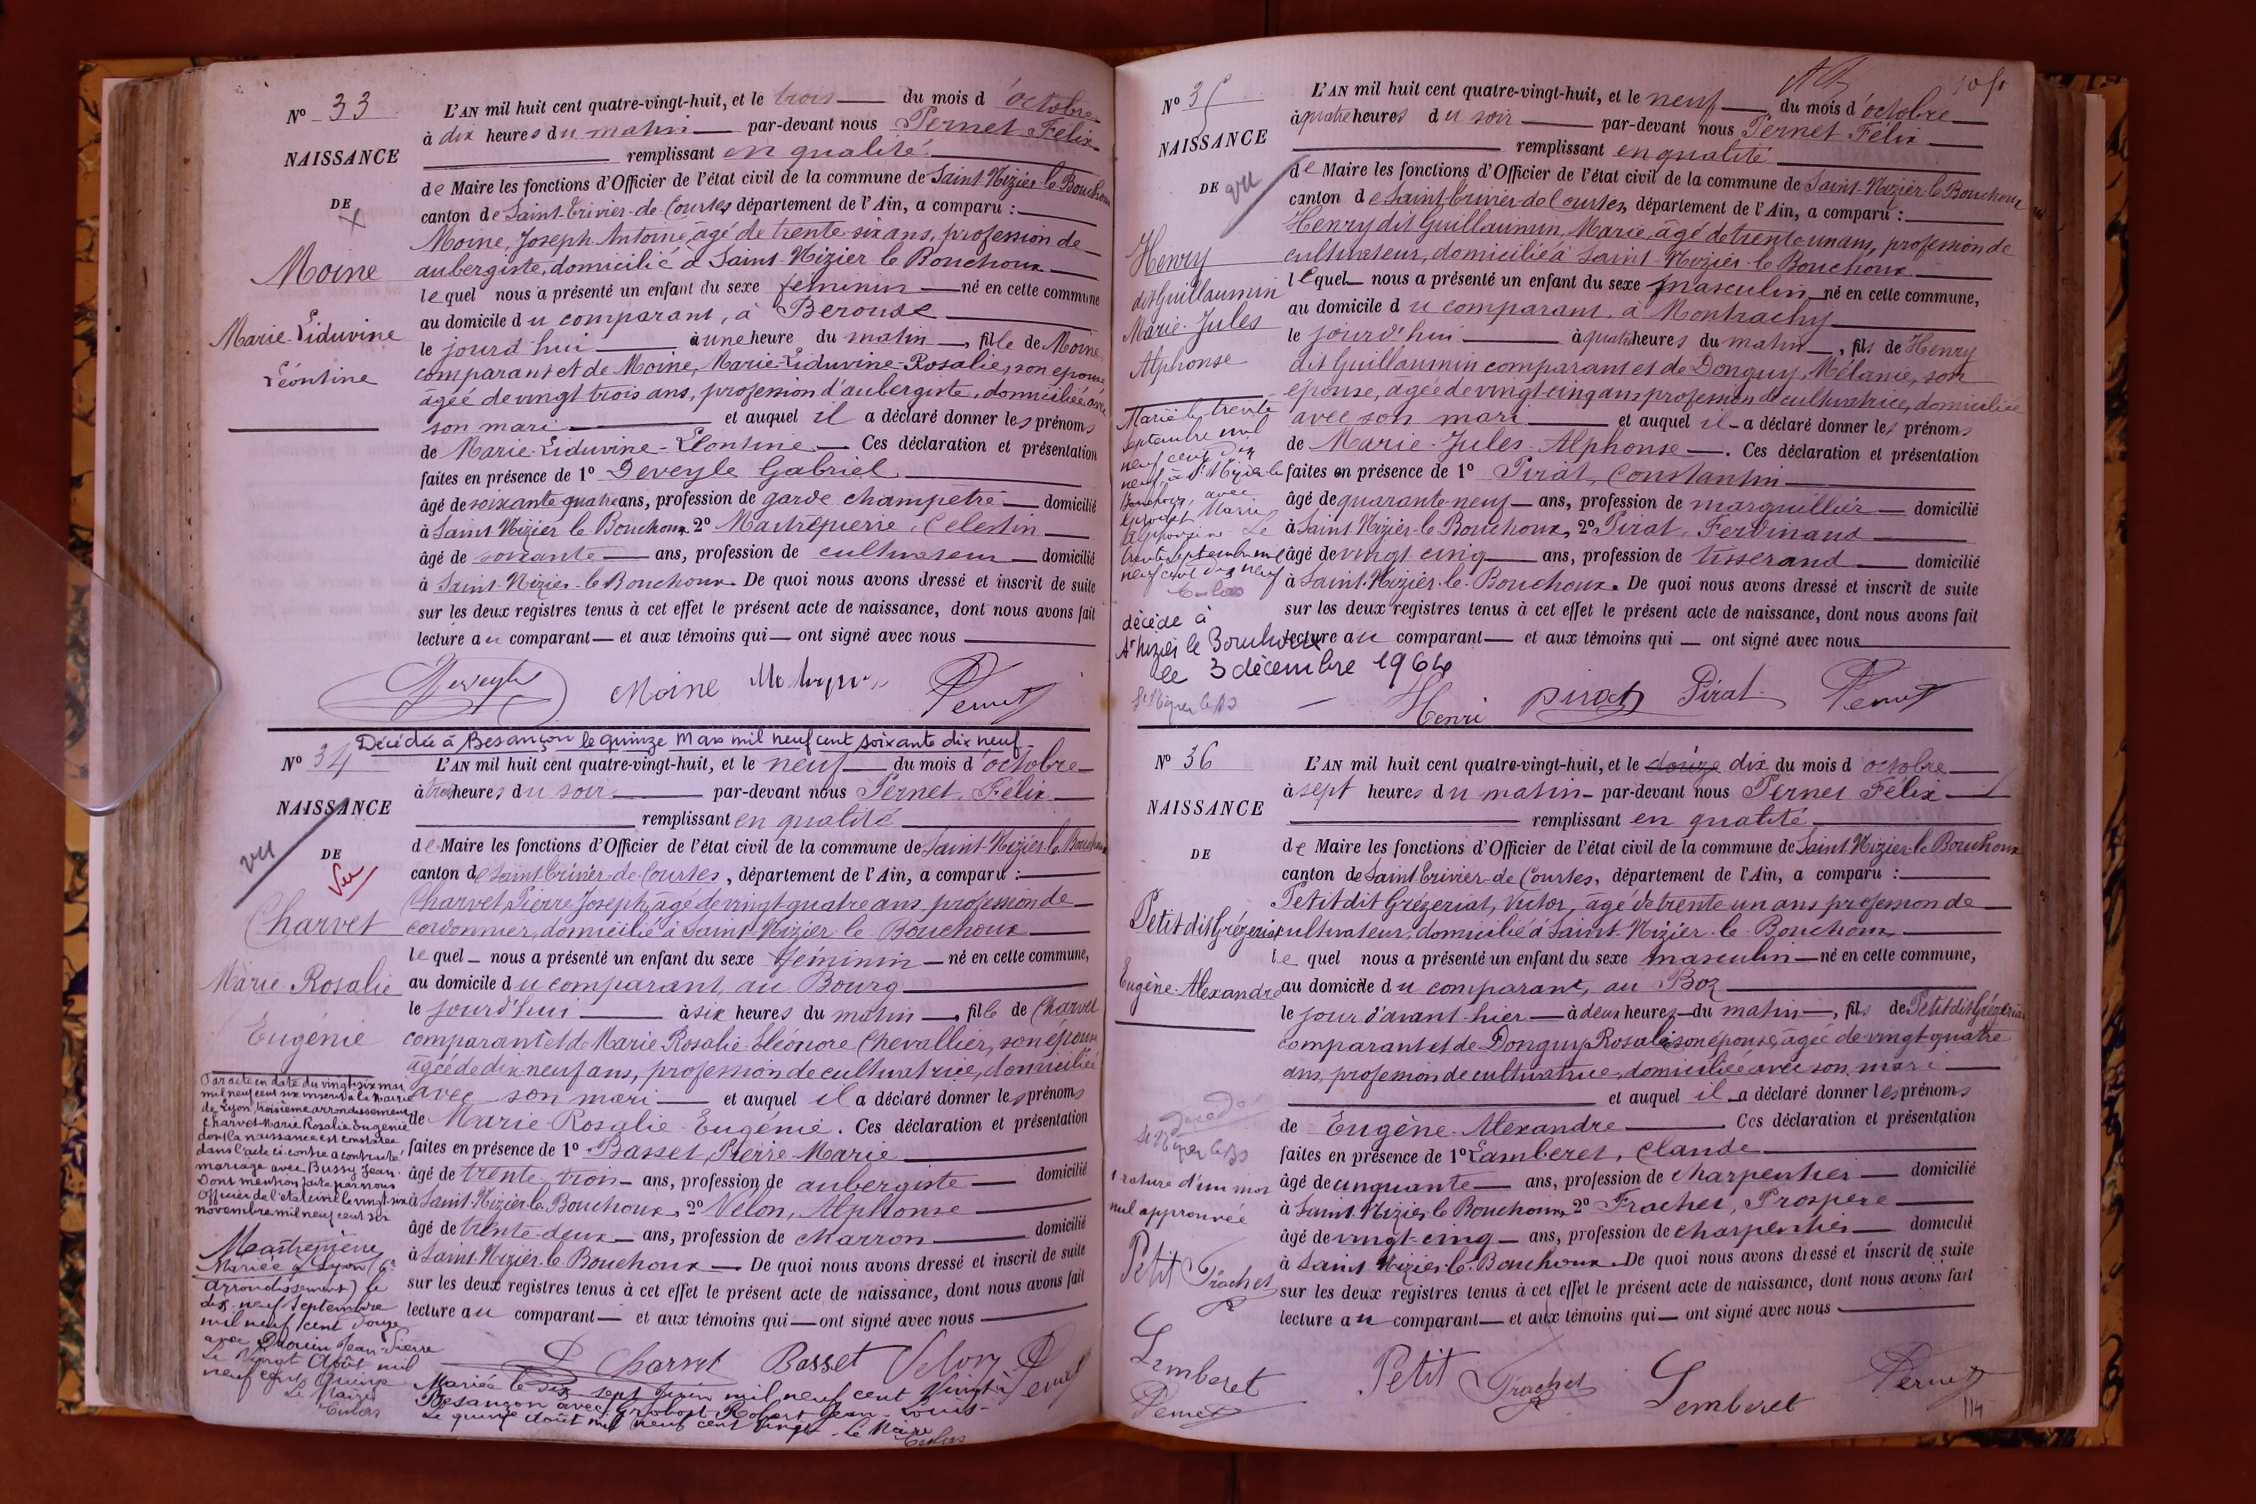 No 33
NAISSANCE
DE
Moine
Marie-Liduvine
Léontine
L'AN mil huit cent quatre-vingt-huit, et le trois du mois d'octobre
à dix heures du matin par-devant nous Pernet Félix
remplissant en qualité
de Maire les fonctions d'Officier de l'état civil de la commune de Saint-Nizier-le-Bouchoux
canton de Saint-Trivier-de-Courtes, département de l'Ain, a comparu :
Moine, Joseph Antoine, agé de trente-six ans, profession de
aubergiste, domicilié à Saint-Nizier le Bouchoux
lequel nous a présenté un enfant du sexe féminin né en cette commune
au domicile du comparant, à Berouse
le jourd'hui à une heure du matin, fille de Moine
comparant et de Moine, Marie-Liduvine-Rosalie, son épouse
agée de vingt trois ans, profession d'aubergiste, domiciliée avec
son mari et auquel il a déclaré donner les prénoms
de Marie-Liduvine-Léontine Ces déclaration et présentation
faites en présence de 1º Deveyle Gabriel
âgé de soixante quatre ans, profession de garde champetre domicilié
à Saint Nizier le Bouchoux 2º Maitrepierre, Célestin
âgé de soixante ans, profession de cultivateur domicilié
à Saint-Nizier-le-Bouchoux. De quoi nous avons dressé et inscrit de suite
sur les deux registres tenus à cet effet le présent acte de naissance, dont nous avons fait
lecture au comparant et aux témoins qui ont signé avec nous
Deveyle Moine Pernet
Décédée à Besançon le quinze Mars mil neuf cent soixante dix neuf
No 34
NAISSANCE
DE
vu
Vu
Charvet
Marie-Rosalie
Eugénie
Par acte en date du vingt-six mai
mil neuf cent six inscrit à la Mairie
de Lyon, troisième arrondissement
Charvet Marie Rosalie Eugénie
dont la naissance est constatée
dans l'acte ci-contre a contracté
mariage avec Bussy Jean.
Dont mention faite par nous
Officier de l'état civil le vingt six
novembre mil neuf cent six
Maitrepierre
Mariée à Lyon (6e
arrondissement) le
dix-neuf Septembre
mil neuf cent douze
avec Drouin Jean-Pierre
Le Vingt Août mil
neuf cent Quinze
Le Maire
L'AN mil huit cent quatre-vingt-huit, et le neuf du mois d'octobre
à trois heures du soir par-devant nous Pernet, Félix
remplissant en qualité
de Maire les fonctions d'Officier de l'état civil de la commune de Saint-Nizier-le-Bouchoux
canton de Saint-Trivier-de-Courtes, département de l'Ain, a comparu :
Charvet, Pierre Joseph, agé de vingt quatre ans, profession de
cordonnier, domicilié à Saint-Nizier le Bouchoux
lequel nous a présenté un enfant du sexe féminin né en cette commune,
au domicile du comparant au Bourg
le jourd'hui à six heures du matin, fille de Charvet
comparant et de Marie Rosalie Eléonore Chevallier, son épouse
agée de dix-neuf ans, profession de cultivatrice, domiciliée
avec son mari et auquel il a déclaré donner les prénoms
de Marie Rosalie Eugénie. Ces déclaration et présentation
faites en présence de 1º Basset, Pierre-Marie
âgé de trente trois ans, profession de aubergiste domicilié
à Saint-Nizier-le-Bouchoux, 2º Velon, Alphonse
âgé de trente-deux ans, profession de charron domicilié
à Saint-Nizier-le-Bouchoux. De quoi nous avons dressé et inscrit de suite
sur les deux registres tenus à cet effet le présent acte de naissance, dont nous avons fait
lecture au comparant et aux témoins qui ont signé avec nous
Charvet Basset Velon Pernet
Mariée le dix sept Juin mil neuf cent vingt à
Besançon avec Grobost Robert Jean-Louis-
Le quinze août mil neuf cent vingt - Le Maire
No 35
NAISSANCE
DE
vu
Henry
dit Guillaumin
Marie-Jules
Alphonse
Marié le trente
Septembre mil
neuf cent dix
neuf, à St Nizier le
Bouchoux, avec
Marie
Le
trente Septembre mil
neuf cent dix neuf
décédé à
St Nizier le Bouchoux
le 3 décembre 1964
St Nizier le Bx
L'AN mil huit cent quatre-vingt-huit, et le neuf du mois d'octobre
à quatre heures du soir par-devant nous Pernet Félix
remplissant en qualité
de Maire les fonctions d'Officier de l'état civil de la commune de Saint-Nizier-le-Bouchoux
canton de Saint-Trivier-de-Courtes, département de l'Ain, a comparu :
Henry dit Guillaumin, Marie, âgé de trente un ans, profession de
cultivateur, domicilié à Saint-Nizier-le-Bouchoux
lequel nous a présenté un enfant du sexe masculin né en cette commune,
au domicile du comparant, à Montrachy
le jourd'hui à quatre heures du matin, fils de Henry
dit Guillaumin comparant et de Donguy, Mélanie, son
épouse, agée de vingt-cinq ans profession de cultivatrice, domiciliée
avec son mari et auquel il a déclaré donner les prénoms
de Marie-Jules-Alphonse. Ces déclaration et présentation
faites en présence de 1º Pirat, Constantin
âgé de quarante-neuf ans, profession de marguillier domicilié
à Saint-Nizier-le-Bouchoux, 2º Pirat, Ferdinand
âgé de vingt cinq ans, profession de tisserand domicilié
à Saint-Nizier-le-Bouchoux. De quoi nous avons dressé et inscrit de suite
sur les deux registres tenus à cet effet le présent acte de naissance, dont nous avons fait
lecture au comparant et aux témoins qui ont signé avec nous
Henri Pirat Pirat Pernet
No 36
NAISSANCE
DE
Petit dit Grézeriat
Eugène-Alexandre
décédé
St Nizier le Bx
1 rature d'un mot
nul approuvée
Petit Frachet
Lemberet
Pernet
L'AN mil huit cent quatre-vingt-huit, et le douze dix du mois d'octobre
à sept heures du matin par-devant nous Pernet Félix
remplissant en qualité
de Maire les fonctions d'Officier de l'état civil de la commune de Saint-Nizier-le-Bouchoux
canton de Saint-Trivier-de-Courtes, département de l'Ain, a comparu :
Petit dit Grézeriat, Victor, âgé de trente un ans profession de
cultivateur, domicilié à Saint-Nizier-le-Bouchoux
lequel nous a présenté un enfant du sexe masculin né en cette commune,
au domicile du comparant, au Boz
le jour d'avant-hier à deux heures du matin, fils de Petit dit Grézeriat
comparant et de Donguy Rosalie son épouse, âgée de vingt-quatre
ans, profession de cultivatrice, domiciliée avec son mari
et auquel il a déclaré donner les prénoms
de Eugène-Alexandre Ces déclaration et présentation
faites en présence de 1º Lamberet, Claude
âgé de cinquante ans, profession de charpentier domicilié
à Saint-Nizier-le-Bouchoux, 2º Frachet, Prospère
âgé de vingt-cinq ans, profession de charpentier domicilié
à Saint Nizier-le-Bouchoux. De quoi nous avons dressé et inscrit de suite
sur les deux registres tenus à cet effet le présent acte de naissance, dont nous avons fait
lecture au comparant et aux témoins qui ont signé avec nous
Petit Frachet Lemberet Pernet
114